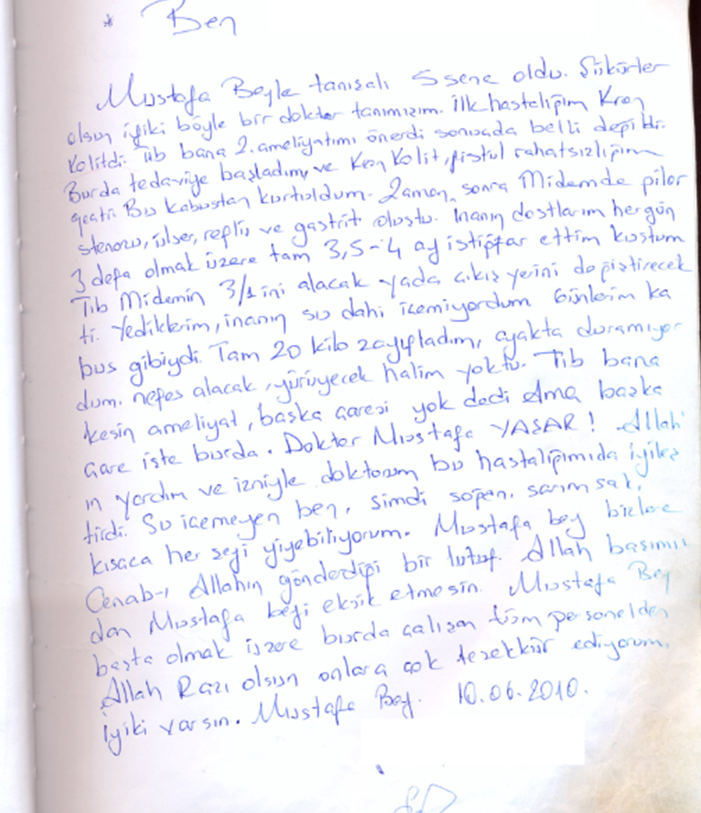 * Ben
Mustafa Beyle tanışalı 5 sene oldu. Şükürler
olsun iyiki böyle bir doktor tanımışım. İlk hastalığım Kron
Kolitdi. Tıb bana 2. ameliyatımı önerdi sonucada belli değildi.
Burda tedaviye başladım, ve Kron Kolit, fistül rahatsızlığım
geçti. Bu kabustan kurtuldum. Zaman sonra Midemde pilor
stenozu, ülser, reflü ve gastrit oluştu. İnanın dostlarım hergün
3 defa olmak üzere tam 3,5-4 ay istifrar ettim kustum
Tıb Midemin 3/1 ini alacak yada çıkış yerini değiştirecek
ti. Yediklerim, inanın su dahi içemiyordum Günlerim ka
bus gibiydi. Tam 20 kilo zayıfladım, ayakta duramıyor
dum. nefes alacak, yürüyecek halim yoktu. Tıb bana
kesin ameliyat, başka çaresi yok dedi Ama başka
çare işte burda. Doktor Mustafa YAŞAR! Allah'
ın yardım ve izniyle doktorum bu hastalığımıda iyileş
tirdi. Su içemeyen ben, şimdi soğan, sarımsak,
kısaca her şeyi yiyebiliyorum. Mustafa bey bizlere
Cenab-ı Allahın gönderdiği bir lütuf. Allah başımız
dan Mustafa beyi eksik etmesin. Mustafa Bey
başta olmak üzere burda çalışan tüm personelden
Allah Razı olsun onlara çok teşekkür ediyorum.
İyiki varsın. Mustafa Bey. 10.06.2010.